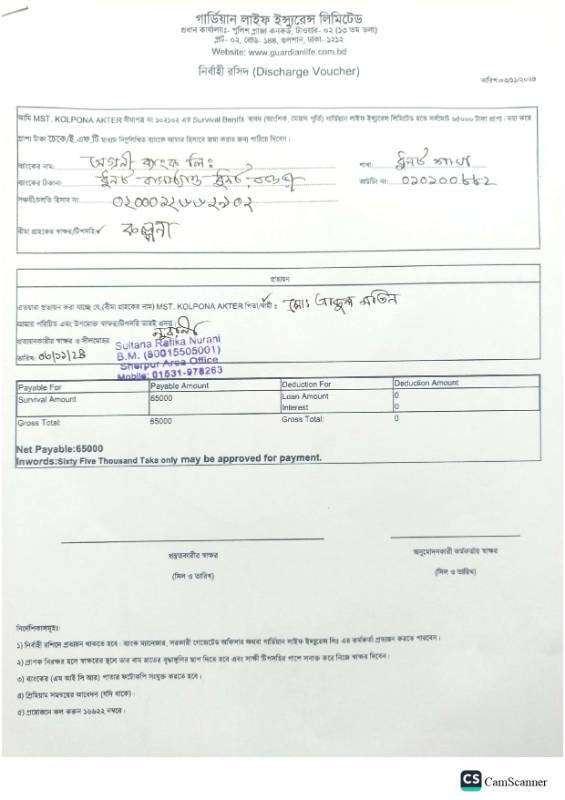 গার্ডিয়ান লাইফ ইন্স্যুরেন্স লিমিটেড
প্রধান কার্যালয়ঃ- পুলিশ প্লাজা কনকর্ড, টাওয়ার- ০২ (১৩ তম তলা)
প্লট- ০২, রোড- ১৪৪, গুলশান, ঢাকা- ১২১২
Website: www.guardianlife.com.bd
নির্বাহী রসিদ (Discharge Voucher)
আমি MST. KOLPONA AKTER বীমাপত্র নং এর Survival Benifit বাবদ (আংশিক, মেয়াদ পূর্তি) গার্ডিয়ান লাইফ ইন্স্যুরেন্স লিমিটেড হতে সর্বমোট ৬৫০০০ টাকা প্রাপ্য। দয়া করে
প্রাপ্য টাকা চেকে/ই.এফ.টি মাধ্যমে নিম্নলিখিত ব্যাংকে আমার হিসাবে জমা করার জন্য পাঠিয়ে দিবেন।
ব্যাংকের নাম: অগ্রনী ব্যাংক লিঃ
শাখা: ধুনট শাখা
ব্যাংকের ঠিকানা: ধুনট বাসস্ট্যান্ড ধুনট, বগুড়া
রাউটিং নং:
সঞ্চয়ী/চলতি হিসাব নং:
বীমা গ্রাহকের স্বাক্ষর/টিপসহি: কল্পনা
প্রত্যয়ন
এতদ্বারা প্রত্যয়ন করা যাচ্ছে যে, (বীমা গ্রাহকের নাম) MST. KOLPONA AKTER পিতা/স্বামী: মোঃ আব্দুল মতিন
আমার পরিচিত এবং উপরোক্ত স্বাক্ষর/টিপসহি তারই
প্রত্যয়নকারীর স্বাক্ষর ও সীলমোহর
Sultana Rafika Nurani
B.M. (80015505001)
Sherpur Area Office
Mobile: 01631-978263
তারিখ:
Payable For Payable Amount Deduction For Deduction Amount
Survival Amount 65000 Loan Amount 0
Interest 0
Gross Total: 65000 Gross Total: 0
Net Payable:65000
Inwords:Sixty Five Thousand Taka only may be approved for payment.
প্রস্তুতকারীর স্বাক্ষর
(সিল ও তারিখ)
অনুমোদনকারী কর্মকর্তার স্বাক্ষর
(সিল ও তারিখ)
নির্দেশিকাসমূহঃ
১) নির্বাহী রশিদে প্রত্যয়ন থাকতে হবে। ব্যাংক ম্যানেজার, সরকারী গেজেটেড অফিসার অথবা গার্ডিয়ান লাইফ ইন্স্যুরেন্স লিঃ এর কর্মকর্তা প্রত্যয়ন করতে পারবেন।
২) প্রাপক নিরক্ষর হলে স্বাক্ষরের স্থলে তার বাম হাতের বৃদ্ধাঙ্গুলির ছাপ দিতে হবে এবং সাক্ষী টিপসহির পাশে সনাক্ত করে নিজে স্বাক্ষর দিবেন।
৩) ব্যাংকের (এম আই সি আর) পাতার ফটোকপি সংযুক্ত করতে হবে।
৪) প্রিমিয়াম সমন্বয়ের আবেদন (যদি থাকে)।
৫) প্রয়োজনে কল করুন ১৬৬২২ নম্বরে।
CS CamScanner